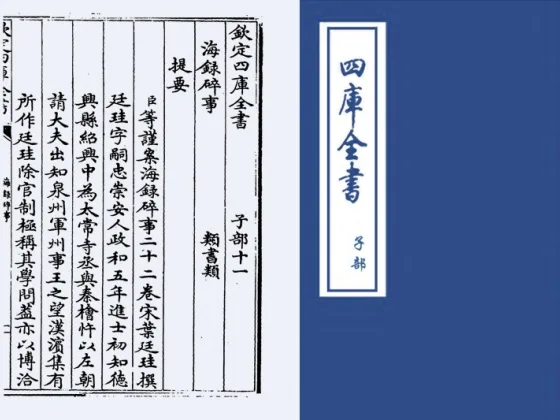 欽定四庫全書　子部十一
海録碎事　類書類
提要
臣等謹案海録碎事二十二卷宋葉廷珪撰
廷珪字嗣忠崇安人政和五年進士初知德
興縣紹興中為太常寺丞與秦檜忤以左朝
請大夫出知泉州軍州事王之望漢濱集有
所作廷珪除官制極稱其學問蓋亦以博洽
欽定四庫全書
海録碎事
四庫全書
子部